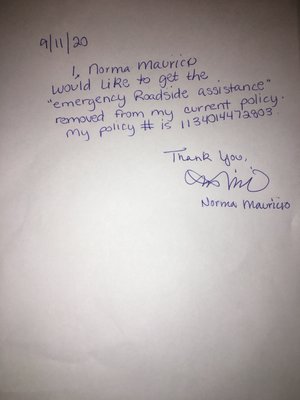 9/11/20
I, Norma Mauricio
would like to get the
"emergency Roadside assistance"
removed from my current policy.
my policy # is 1134014472803.
Thank you,
Norma Mauricio